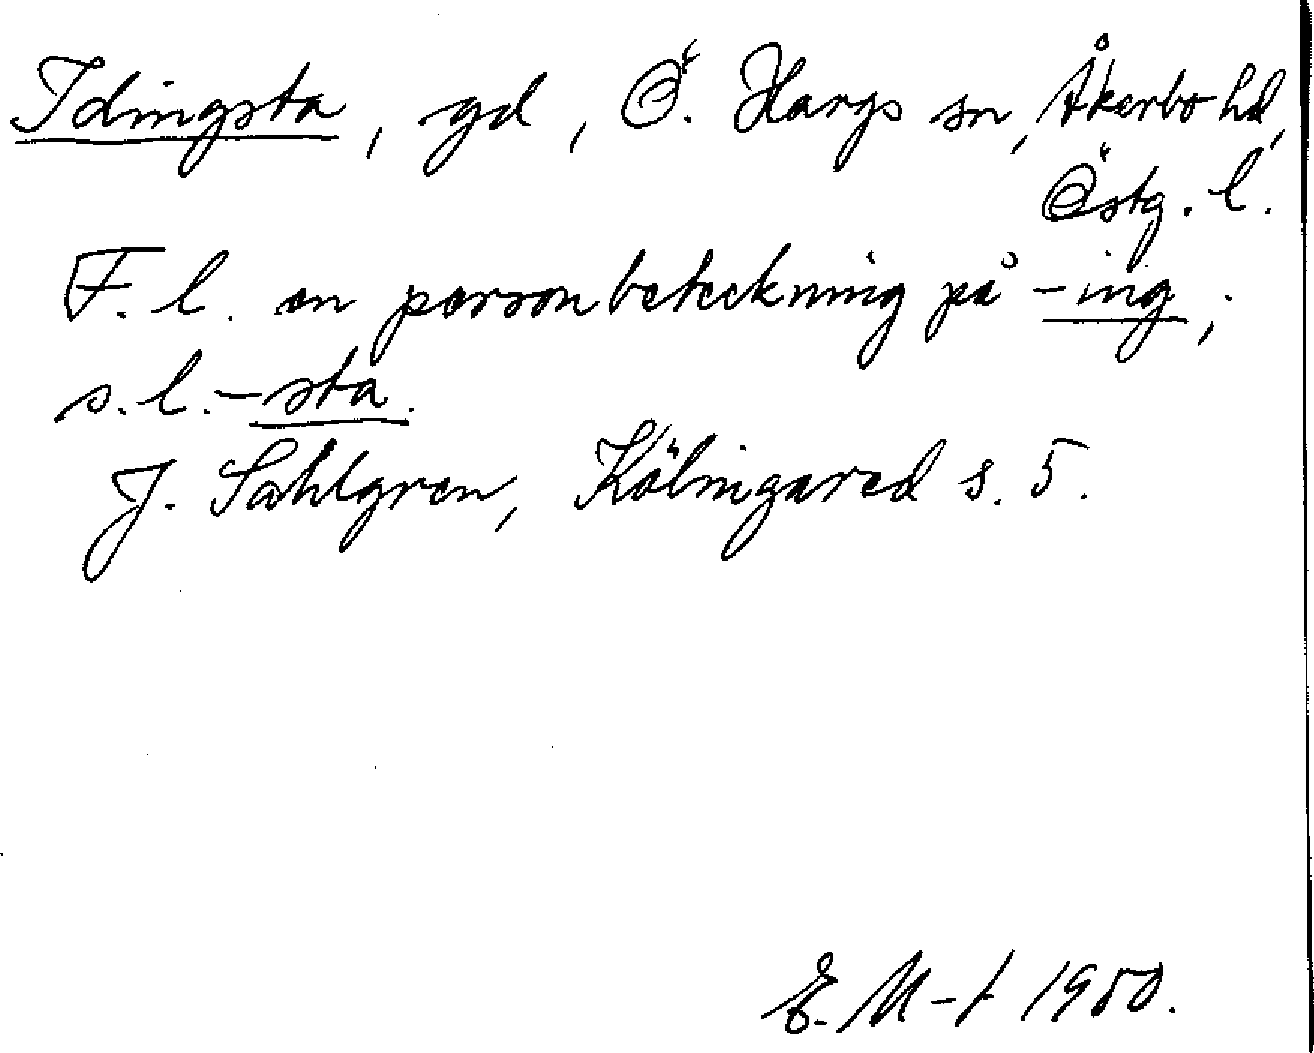 Idingsta, gd, Ö. Hargs sn, Åkerbo hd,
Östg. l.
F. l. en personbeteckning på -ing;
s. l. -sta.
J. Sahlgren, Kölingared s. 5.
E. M-t 1950.